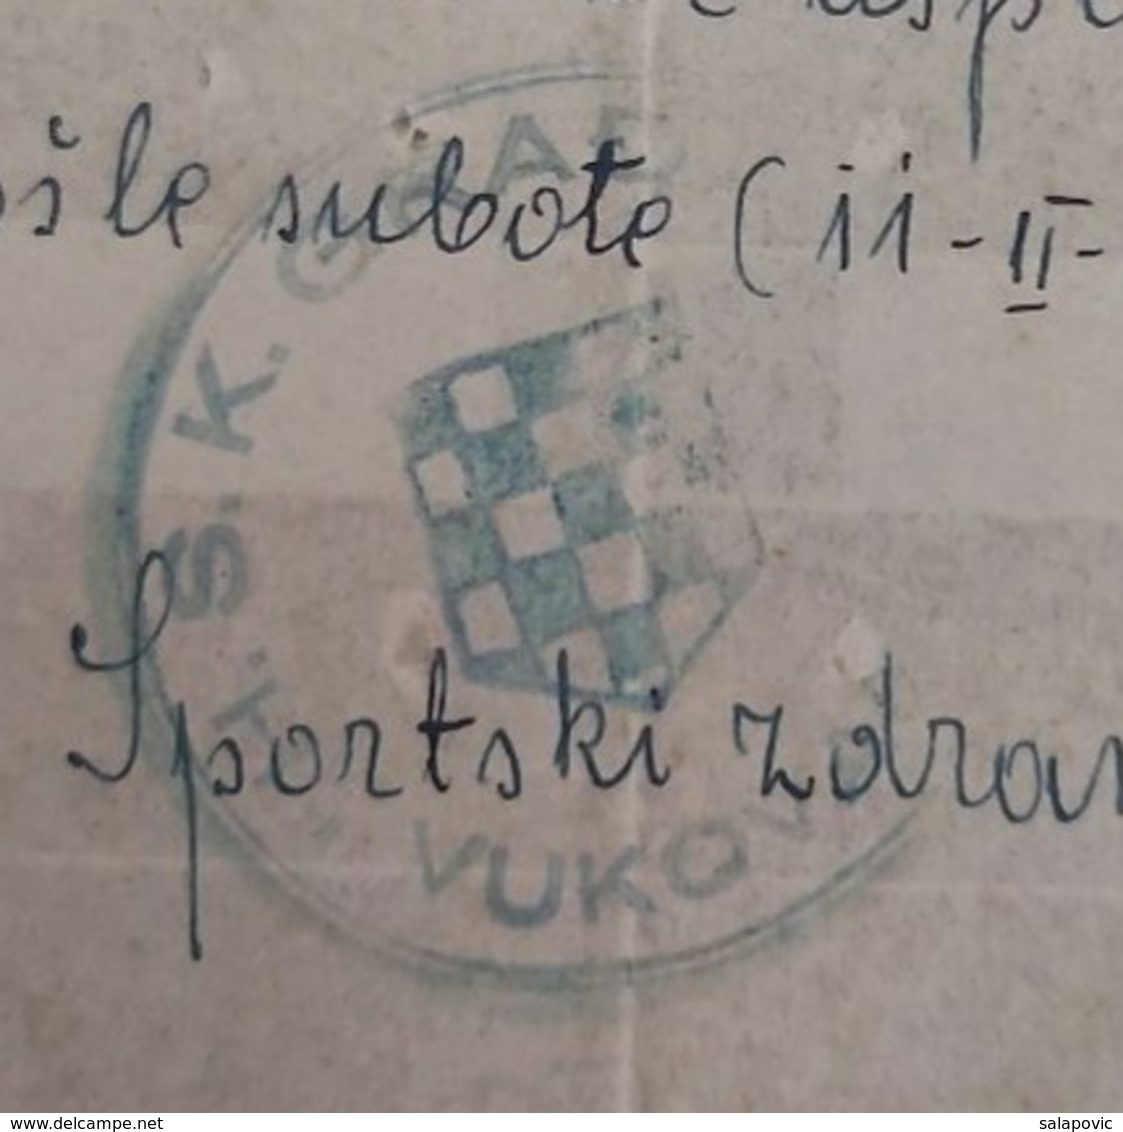 šle subote (11-II-
H.Š.K. GRAĐ
Sportski zdrav
VUKOV
www.delcampe.net
salapovic